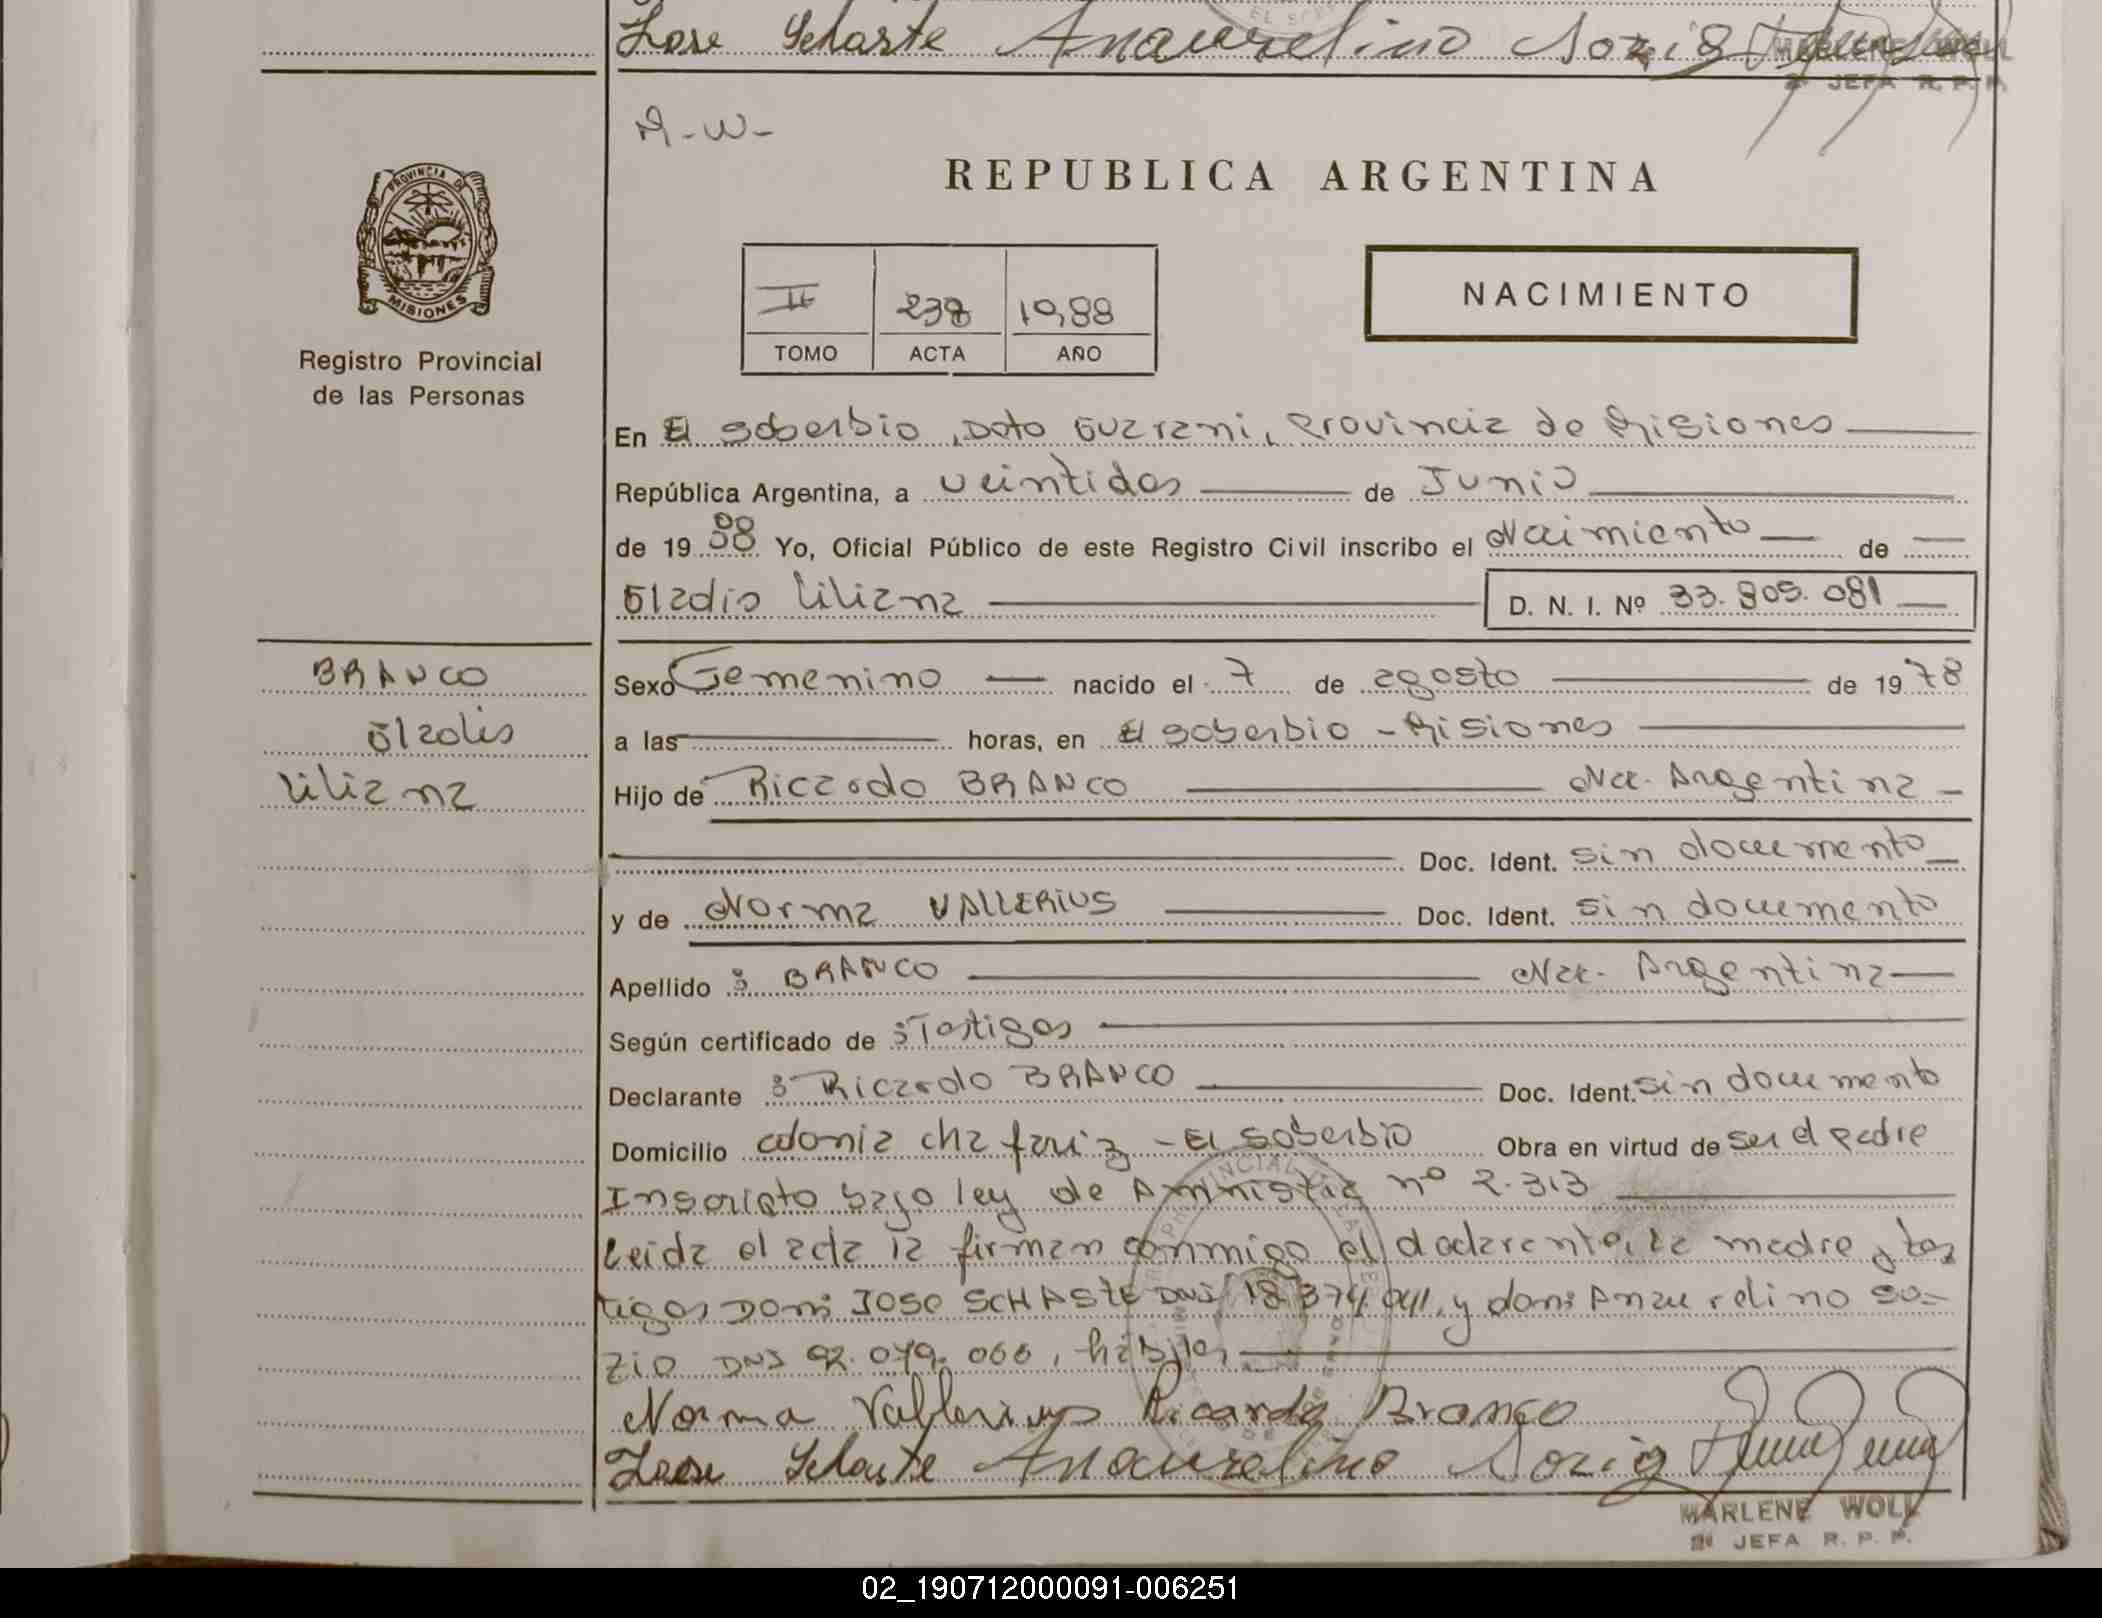 Jose Schaste Anaurelino Sozio
MARLENE WOLL
JEFA R. P. P.
A-W-
REPUBLICA ARGENTINA
PROVINCIA DE
MISIONES
Registro Provincial
de las Personas
II 238 1988
TOMO ACTA AÑO
NACIMIENTO
En El Soberbio, Dpto Guarani, Provincia de Misiones
República Argentina, a veintidos de Junio
de 19 88 Yo, Oficial Público de este Registro Civil inscribo el Nacimiento de
Gladis Liliana D. N. I. Nº 33.905.081
BRANCO
Gladis
Liliana
Sexo Femenino nacido el 7 de agosto de 19 78
a las horas, en El Soberbio - Misiones
Hijo de Ricardo BRANCO Nac. Argentina
Doc. Ident. sin documento
y de Norma VALLERIUS Doc. Ident. sin documento
Apellido : BRANCO Nac. Argentina
Según certificado de : Testigos
Declarante : Ricardo BRANCO Doc. Ident. sin documento
Domicilio colonia chafariz - El Soberbio Obra en virtud de ser el padre
Inscripto bajo ley de Amnistia nº 2.313
Leida el acta la firman conmigo el declarante, la madre y tes
tigos Don: Jose SCHASTE DNI 18.374.041, y don: Anaurelino So-
zio DNI 92.079.066, hábiles,
Norma Vallerius Ricardo Branco
Jose Schaste Anaurelino Sozio
MARLENE WOLL
JEFA R. P. P.
02_190712000091-006251